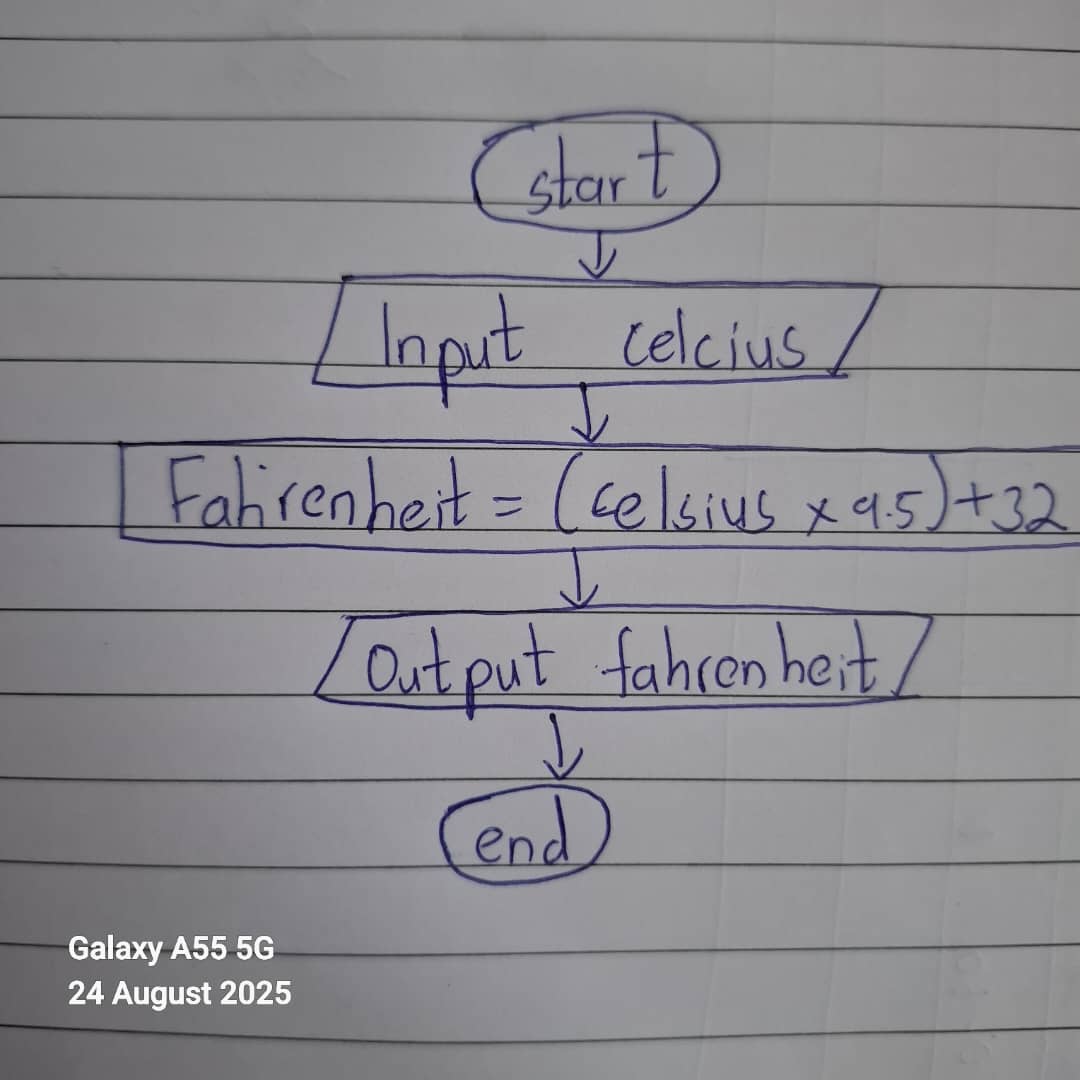 start
Input celcius
Fahirenheit = (celsius x 9.5)+32
Output fahrenheit
end
Galaxy A55 5G
24 August 2025